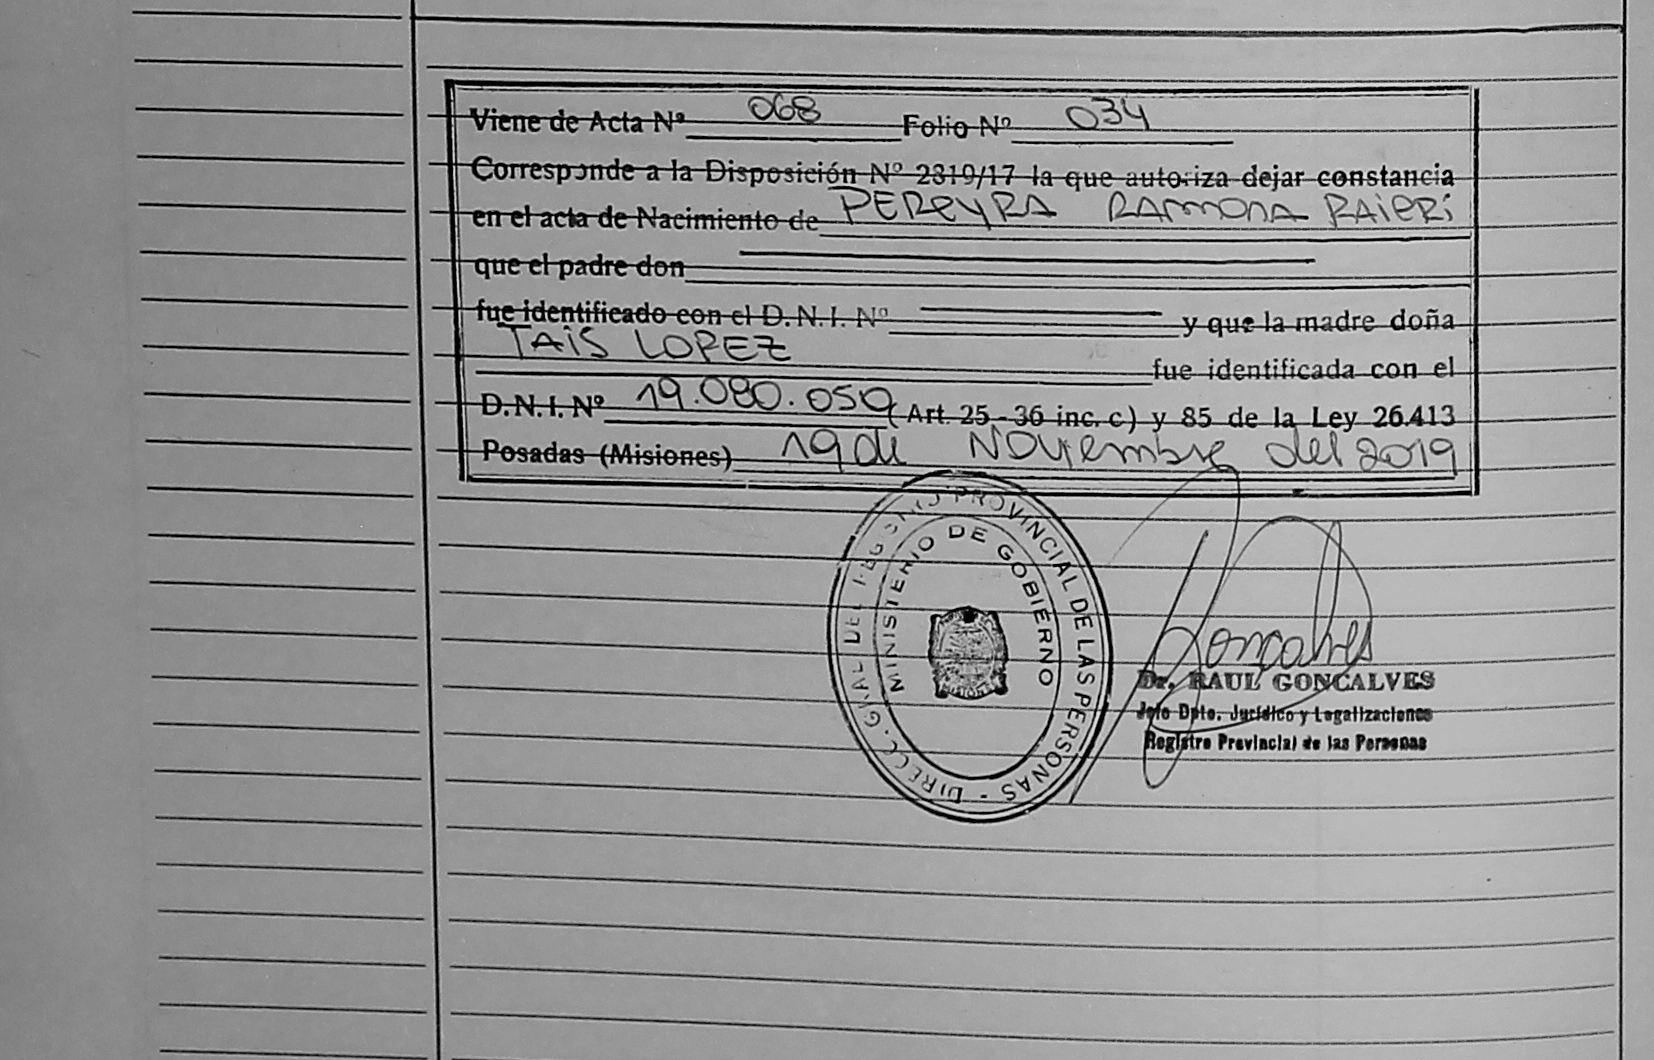 Viene de Acta Nº 068 Folio Nº 034
Corresponde a la Disposición Nº 2319/17 la que autoriza dejar constancia
en el acta de Nacimiento de PEREYRA RAMONA RAIERI
que el padre don
fue identificado con el D.N.I. Nº y que la madre doña
TAIS LOPEZ fue identificada con el
D.N.I. Nº 19.080.059 (Art. 25 - 36 inc. c) y 85 de la Ley 26.413
Posadas (Misiones) 19 de Noviembre del 2019
DIRECC. GRAL DEL REGISTRO PROVINCIAL DE LAS PERSONAS -
MINISTERIO DE GOBIERNO
MISIONES
Goncalves
Dr. RAUL GONCALVES
Jefe Dpto. Jurídico y Legalizaciones
Registro Provincial de las Personas